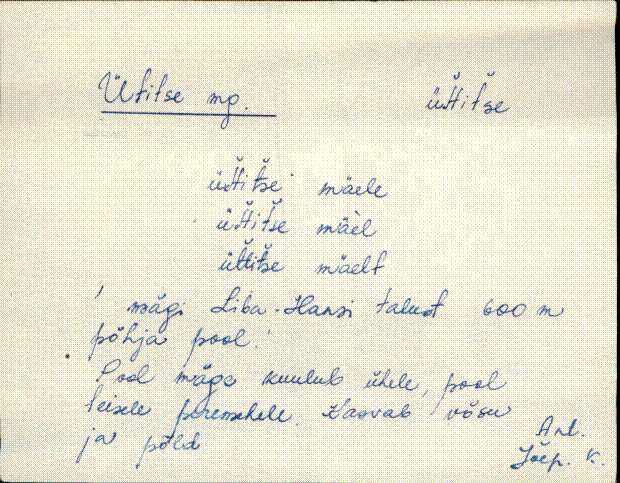 Ütitse mp. üťťitše
üťťitše mäele
üťťitše mäel
üťťitše mäelt
' mägi Liba-Hansi talust 600 m
põhja pool.'
Pool mäge kuulub ühele, pool
teisele peremehele. Kasvab võsu
ja põld
Ant.
Jõep. K.